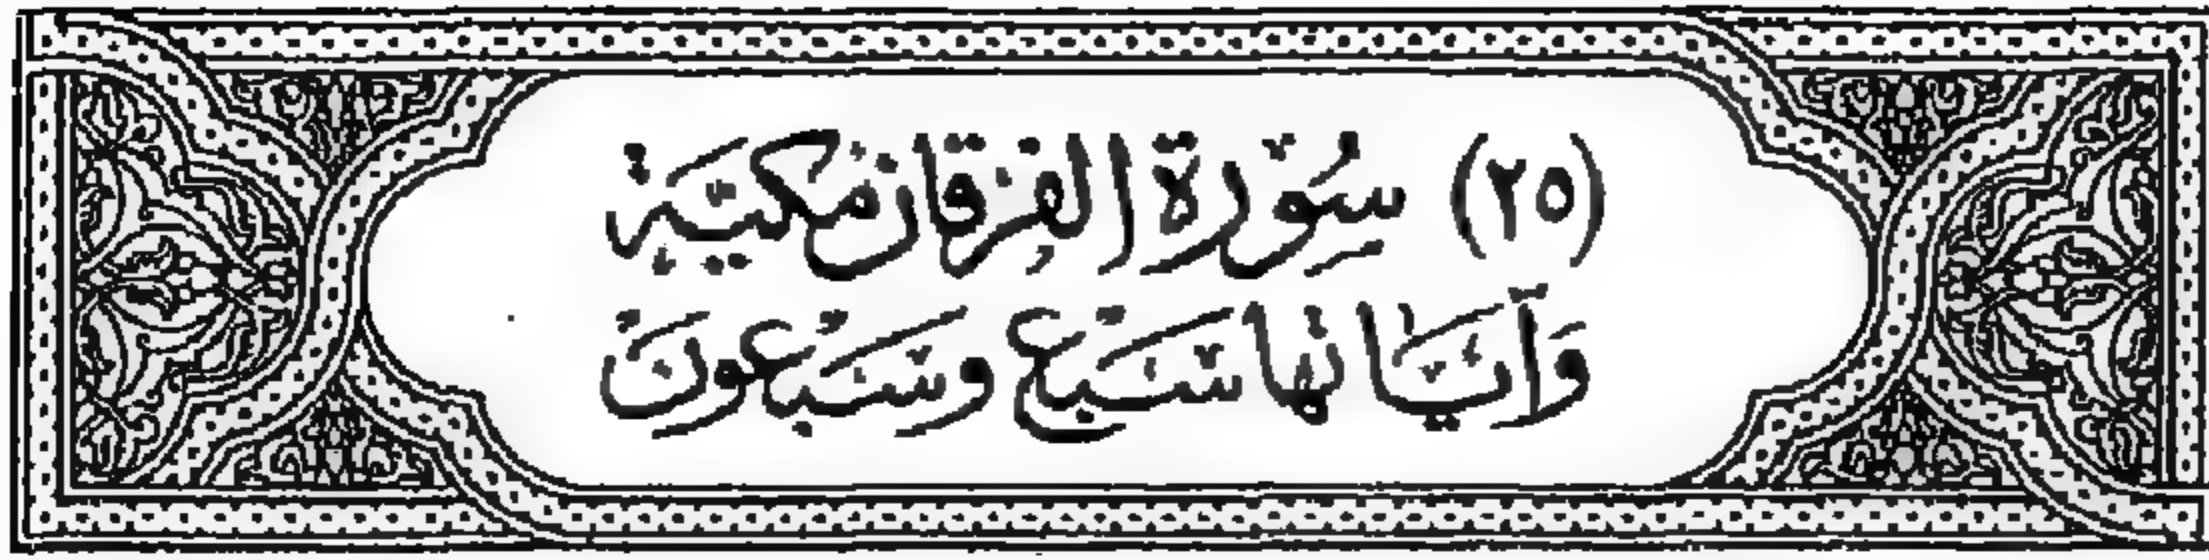 (٢٥) سُوْرَة الفُرْقَان مَكِيَّةٌ
وَآيَاتُهَا سَبْعٌ وَسَبْعُونَ